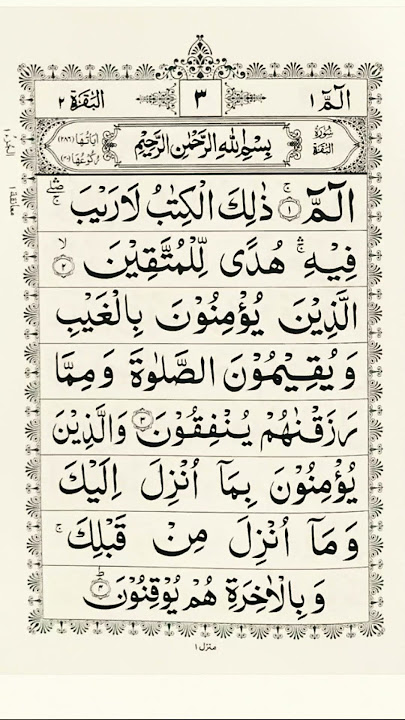 الٓمّٓ ١
٣
البَقَرَة ٢
سُورَةُ البَقَرَة
بِسْمِ اللهِ الرَّحْمٰنِ الرَّحِيْمِ
اٰيَاتُهَا (٢٨٦)
رُكُوْعُهَا (٤٠)
الٓمّٓ ۚ ﴿١﴾ ذٰلِكَ الْكِتٰبُ لَا رَيْبَ ۛۖۚ
فِيْهِ ۛۚ هُدًى لِّلْمُتَّقِيْنَ ۙ ﴿٢﴾
الَّذِيْنَ يُؤْمِنُوْنَ بِالْغَيْبِ
وَيُقِيْمُوْنَ الصَّلٰوةَ وَمِمَّا
رَزَقْنٰهُمْ يُنْفِقُوْنَ ﴿٣﴾ وَالَّذِيْنَ
يُؤْمِنُوْنَ بِمَآ اُنْزِلَ اِلَيْكَ
وَمَآ اُنْزِلَ مِنْ قَبْلِكَ ۚ
وَبِالْاٰخِرَةِ هُمْ يُوْقِنُوْنَ ؕ ﴿٤﴾
منزل ١